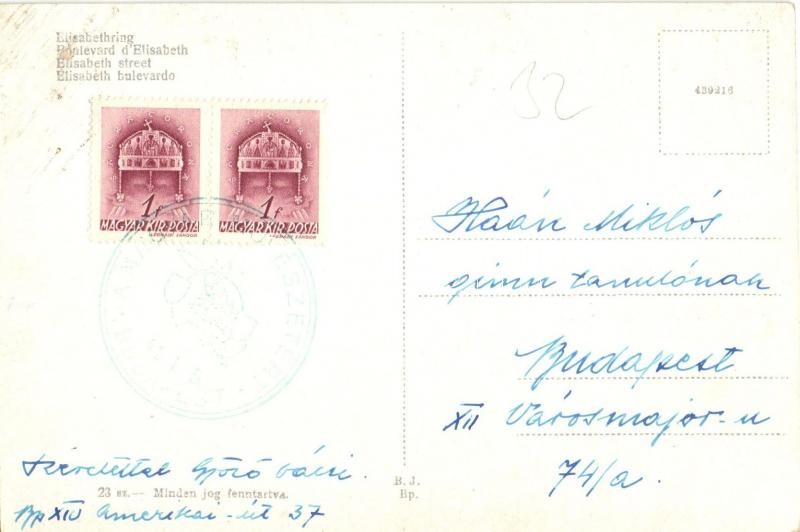 Elisabethring
Boulevard d'Elisabeth
Elisabeth street
Elisabeth bulevardo
32
439216
1f
MAGYAR KIR. POSTA
1f
MAGYAR KIR. POSTA
Haán Miklós
gimn tanulónak
Budapest
XII Városmajor-u
74/a.
Szeretettel Győző bácsi.
23 sz.— Minden jog fenntartva.
B. J.
Bp.
Bp XIV Amerikai-út 37